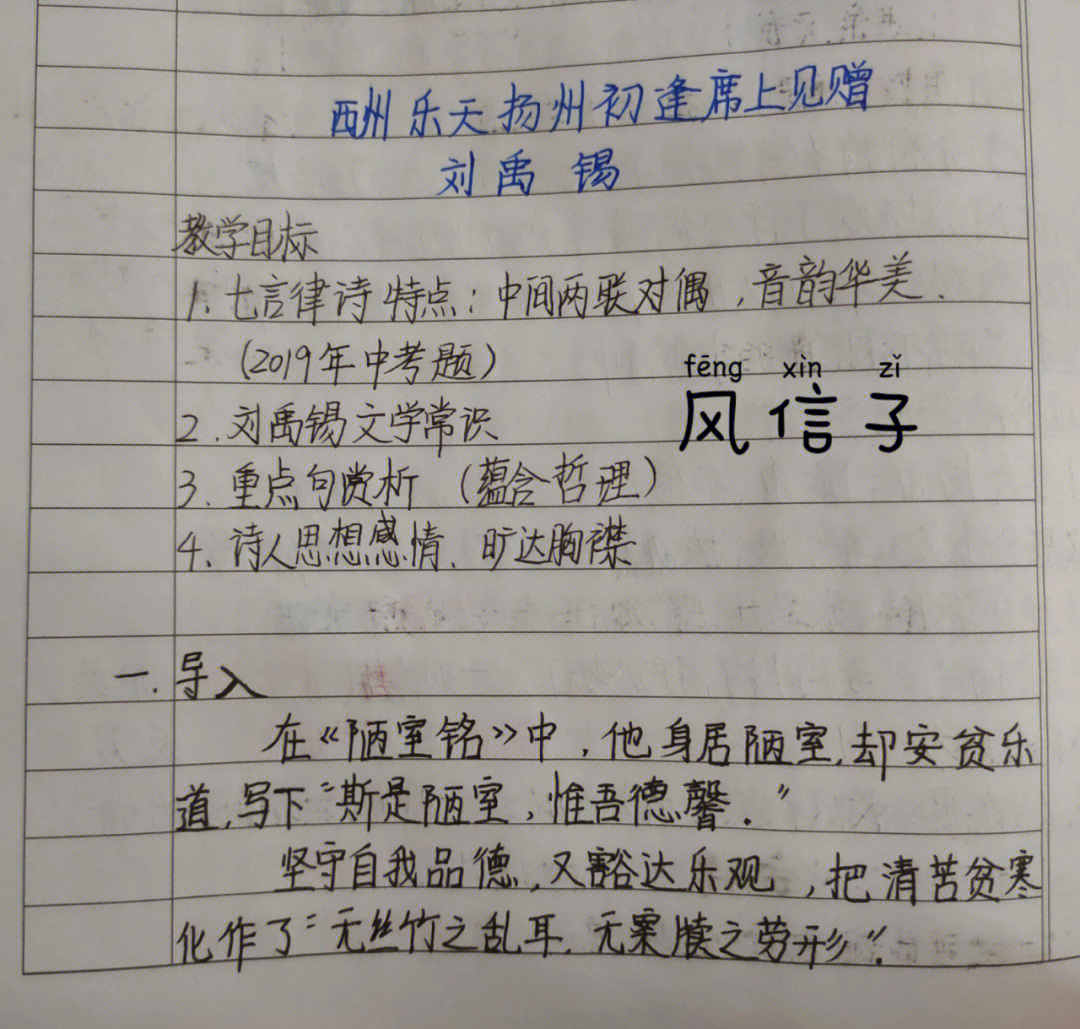 酬乐天扬州初逢席上见赠
刘禹锡
教学目标
1、七言律诗特点：中间两联对偶，音韵华美、
（2019年中考题）
fēng xìn zǐ
风信子
2.刘禹锡文学常识
3.重点句赏析（蕴含哲理）
4、诗人思想感情、旷达胸襟
一.导入
在《陋室铭》中，他身居陋室，却安贫乐
道，写下“斯是陋室，惟吾德馨.”
坚守自我品德，又豁达乐观，把清苦贫寒
化作了“无丝竹之乱耳，无案牍之劳形”.